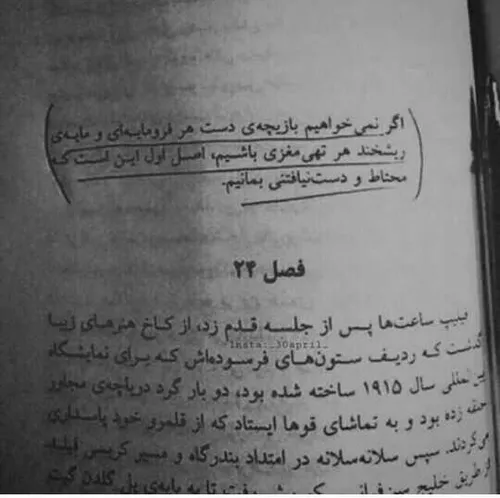 اگر نمی‌خواهیم بازیچه‌ی دست هر فرومایه‌ای و مایه‌ی
ریشخند هر تهی‌مغزی باشیم، اصل اول این است که
محتاط و دست‌نیافتنی بمانیم.
فصل ۲۴
فیلیپ ساعت‌ها پس از جلسه قدم زد، از کاخ هنرهای زیبا
Insta:_30april_
گذشت که ردیف ستون‌های فرسوده‌اش که برای نمایشگاه
بین‌المللی سال ۱۹۱۵ ساخته شده بود، دو بار گرد دریاچه‌ی مجاور
حلقه زده بود و به تماشای قوها ایستاد که از قلمرو خود پاسداری
می‌کردند. سپس سلانه‌سلانه در امتداد بندرگاه و مسیر کریسی فیلد
از طریق خلیج سن‌فرانسیسکو پیش رفت تا به پایه‌ی پل گلدن گیت